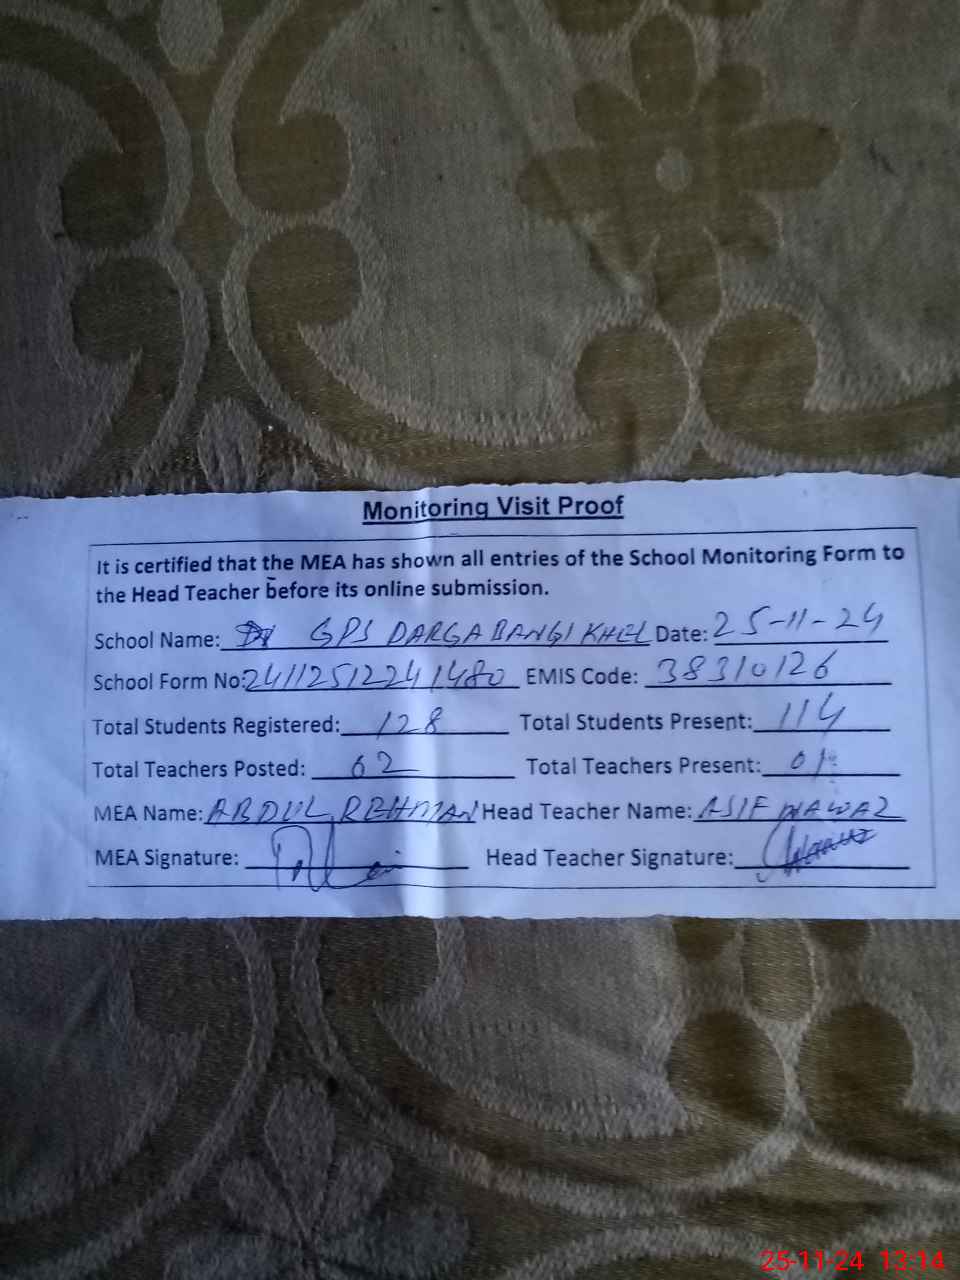 Monitoring Visit Proof
It is certified that the MEA has shown all entries of the School Monitoring Form to
the Head Teacher before its online submission.
School Name: GPS DARGA BANGI KHEL Date: 25-11-24
School Form No: 241125122241480 EMIS Code: 38310126
Total Students Registered: 128 Total Students Present: 114
Total Teachers Posted: 02 Total Teachers Present: 01
MEA Name: ABDUL REHMAN Head Teacher Name: ASIF NAWAZ
MEA Signature: Head Teacher Signature:
25-11-24 13:14